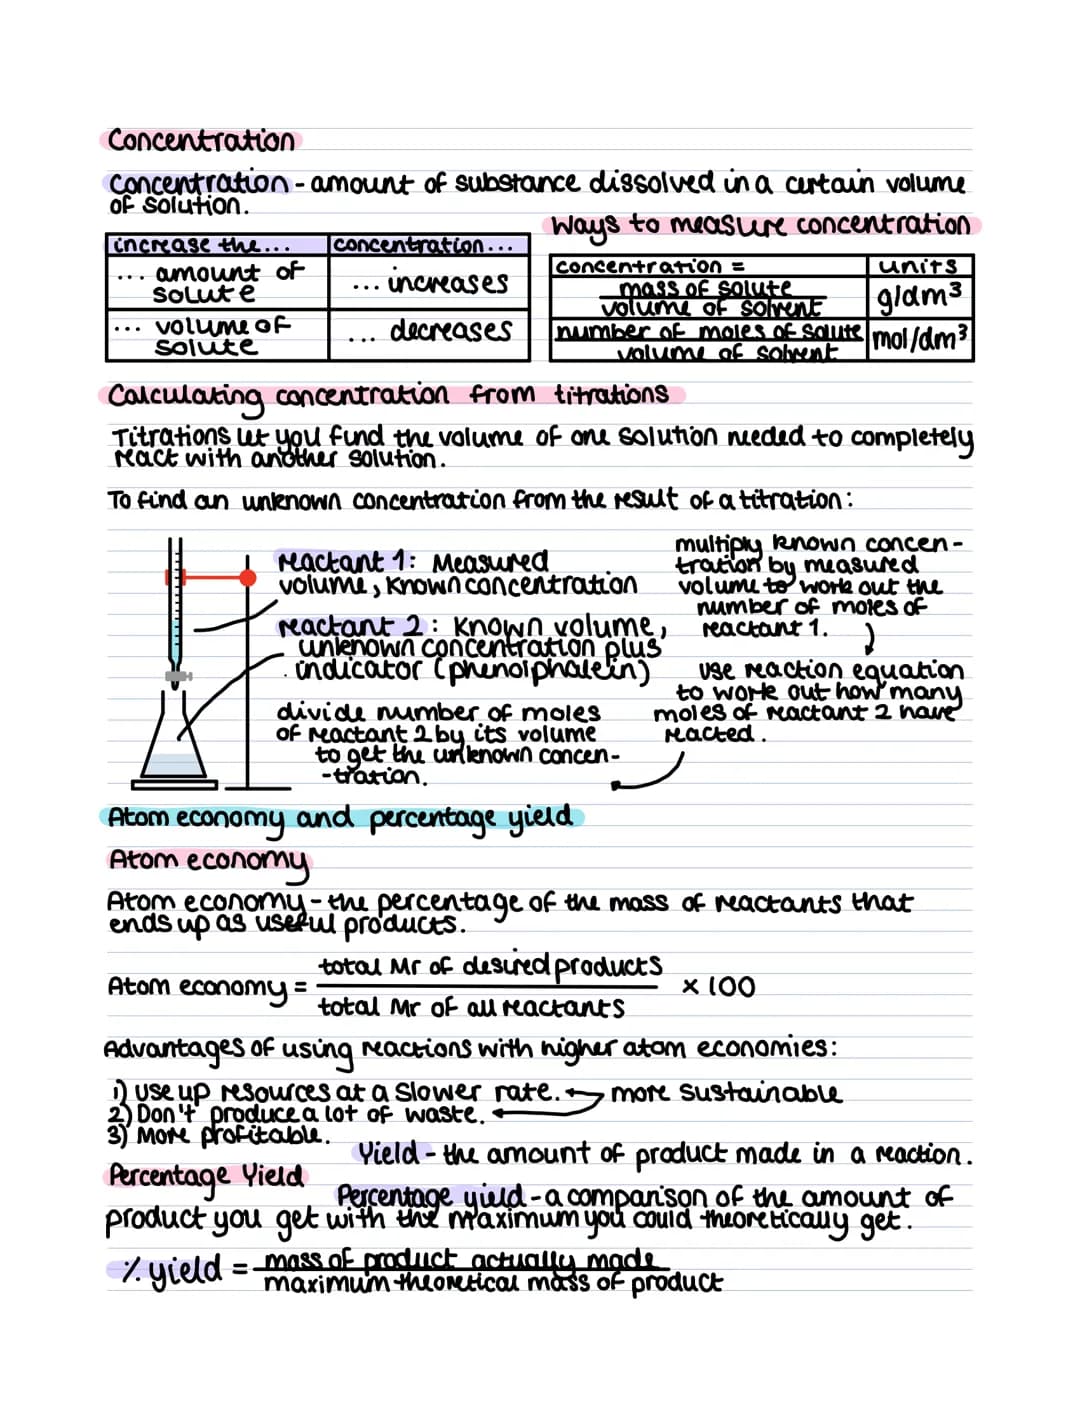 Concentration
Concentration - amount of substance dissolved in a certain volume
of solution.
Ways to measure concentration
increase the... concentration...
... amount of
solute
... increases
... volume of
solute
... decreases
concentration = units
mass of solute
volume of solvent
g/dm³
number of moles of solute
volume of solvent
mol/dm³
Calculating concentration from titrations
Titrations let you find the volume of one solution needed to completely
react with another solution.
To find an unknown concentration from the result of a titration:
reactant 1: Measured
volume, known concentration
reactant 2: known volume,
unknown concentration plus
indicator (phenolphalein)
multiply known concen-
tration by measured
volume to work out the
number of moles of
reactant 1.
use reaction equation
to work out how many
moles of reactant 2 have
reacted.
divide number of moles
of reactant 2 by its volume
to get the unknown concen-
-tration.
Atom economy and percentage yield
Atom economy
Atom economy - the percentage of the mass of reactants that
ends up as useful products.
Atom economy = total Mr of desired products
total Mr of all reactants
x 100
Advantages of using reactions with higher atom economies:
1) use up resources at a slower rate. more sustainable
2) Don't produce a lot of waste.
3) More profitable.
Yield - the amount of product made in a reaction.
Percentage Yield
Percentage yield - a comparison of the amount of
product you get with the maximum you could theoretically get.
% yield = mass of product actually made
maximum theoretical mass of product